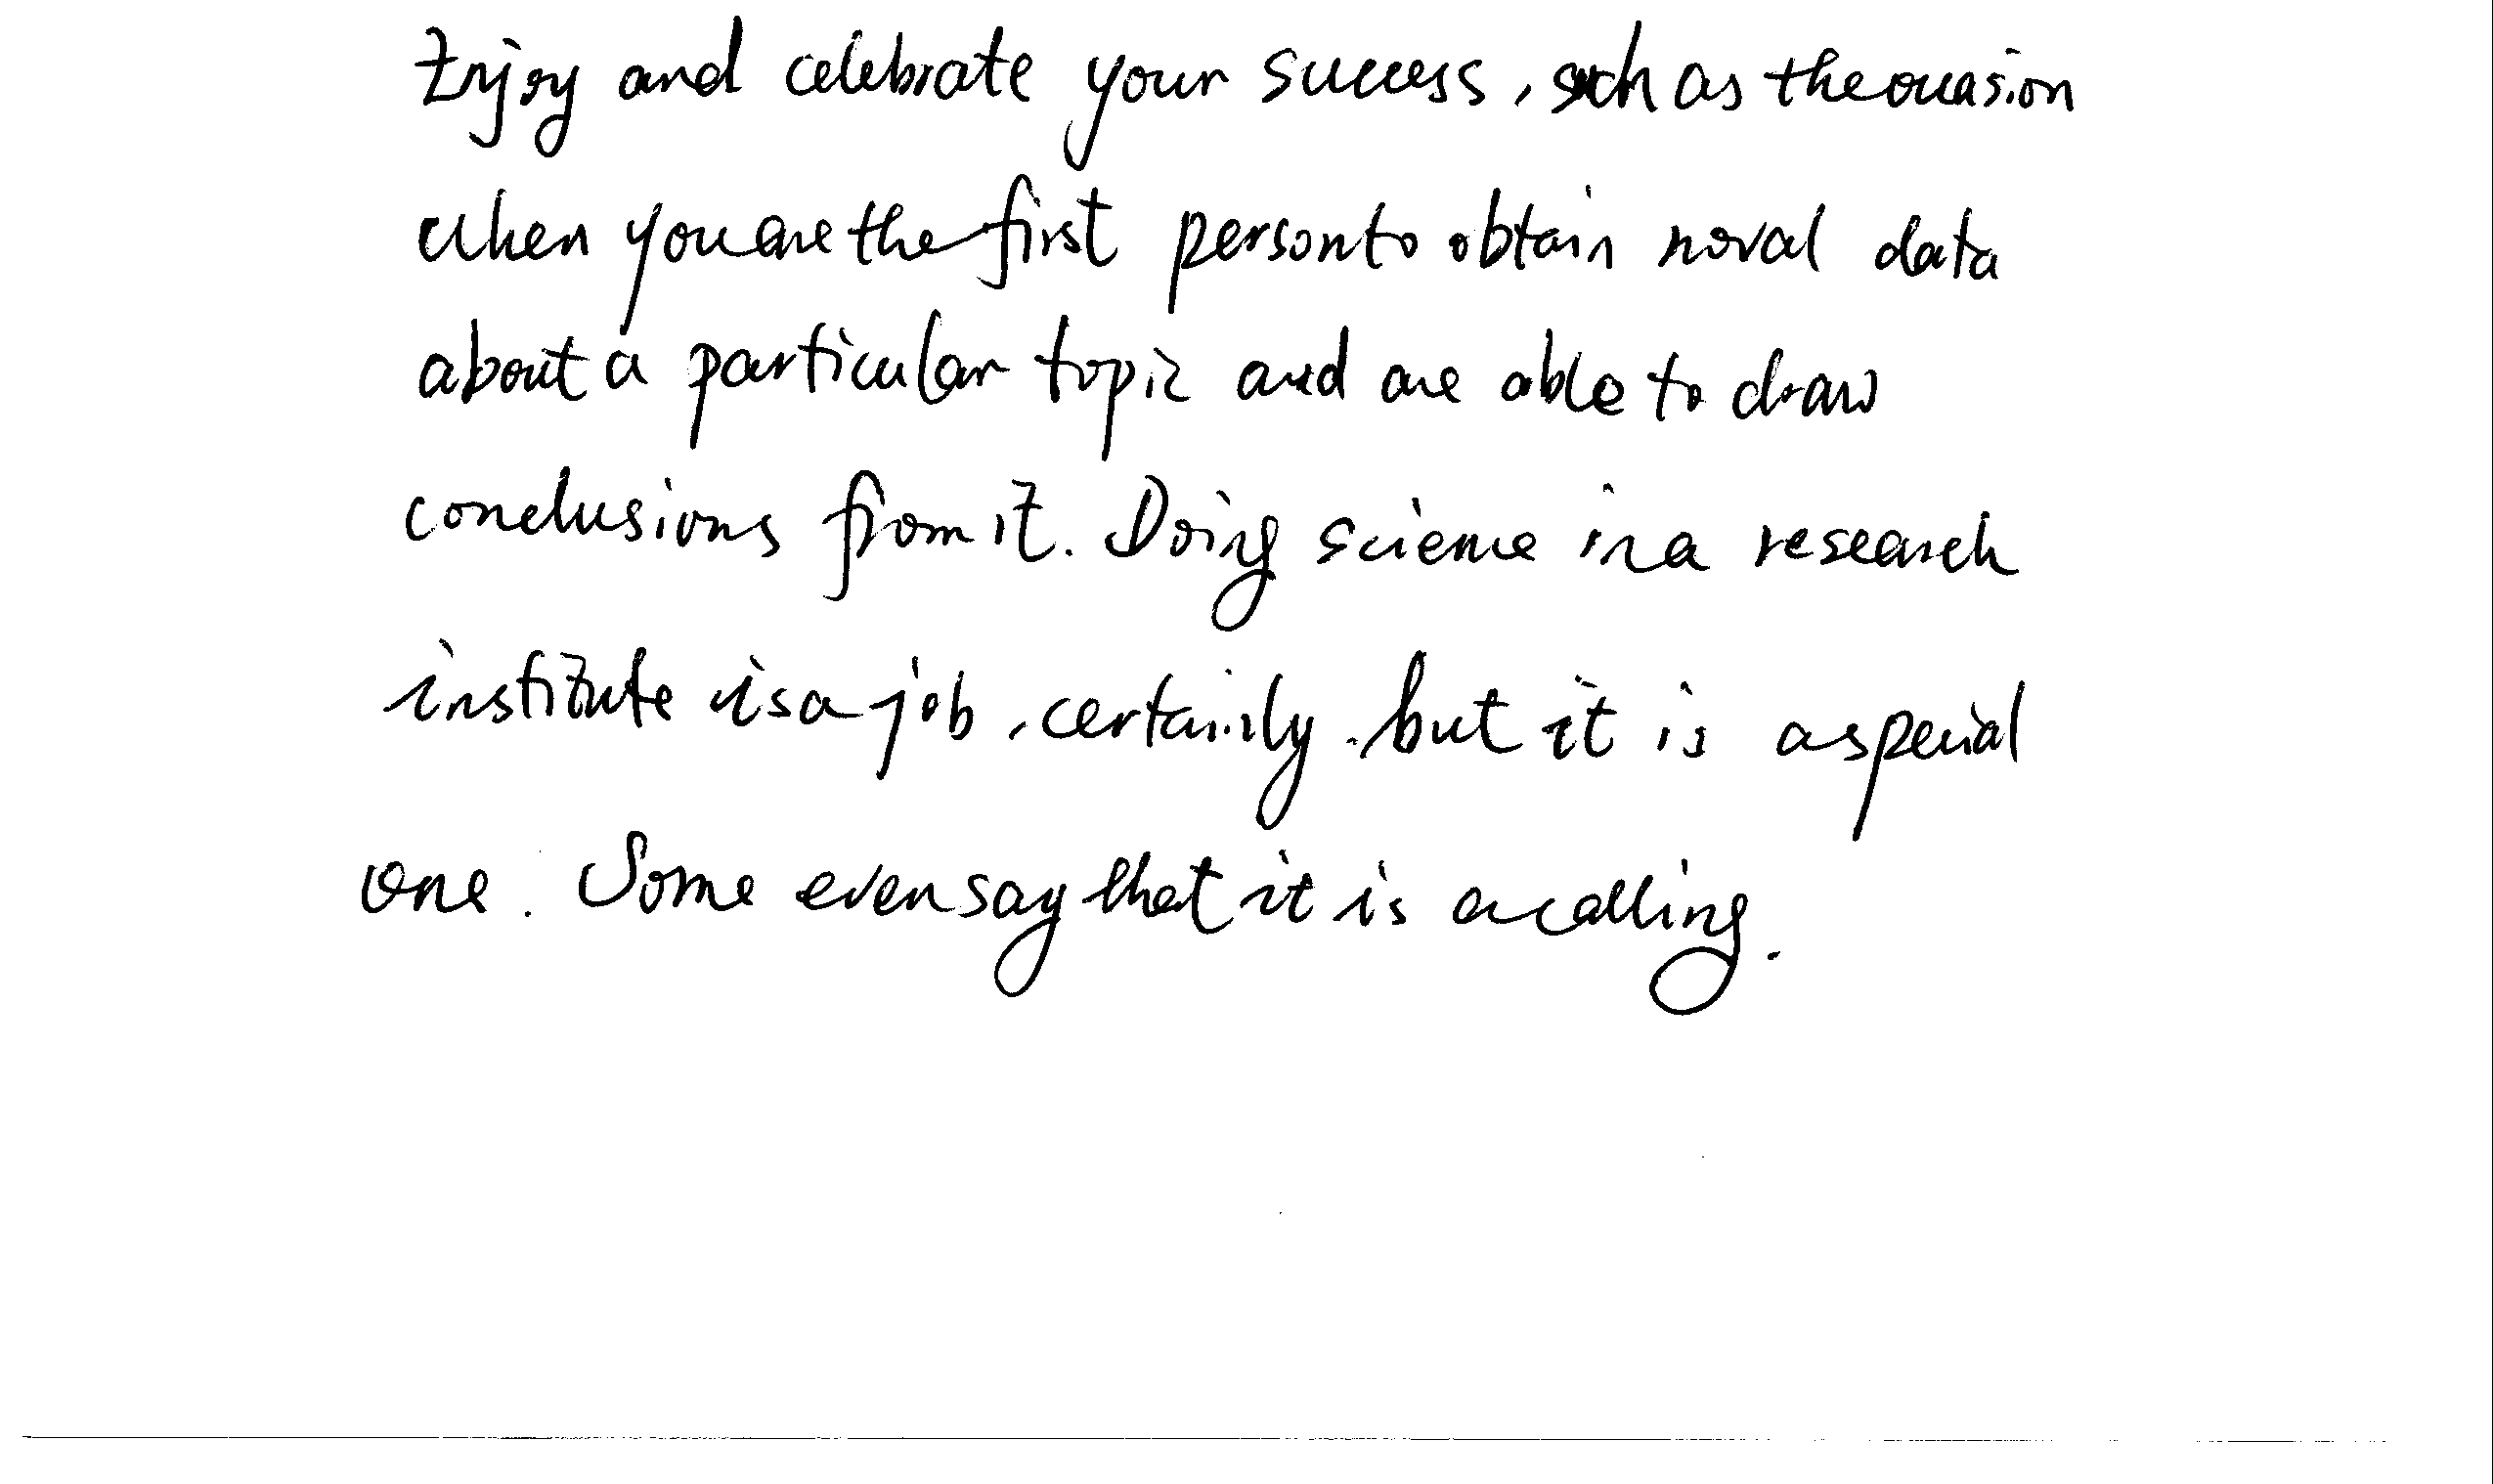 Enjoy and celebrate your success, such as the occasion
when you are the first person to obtain noval data
about a particular topic and are able to draw
conclusions from it. Doing science in a research
institute is a job, certainly, but it is a special
one. Some even say that it is a calling.